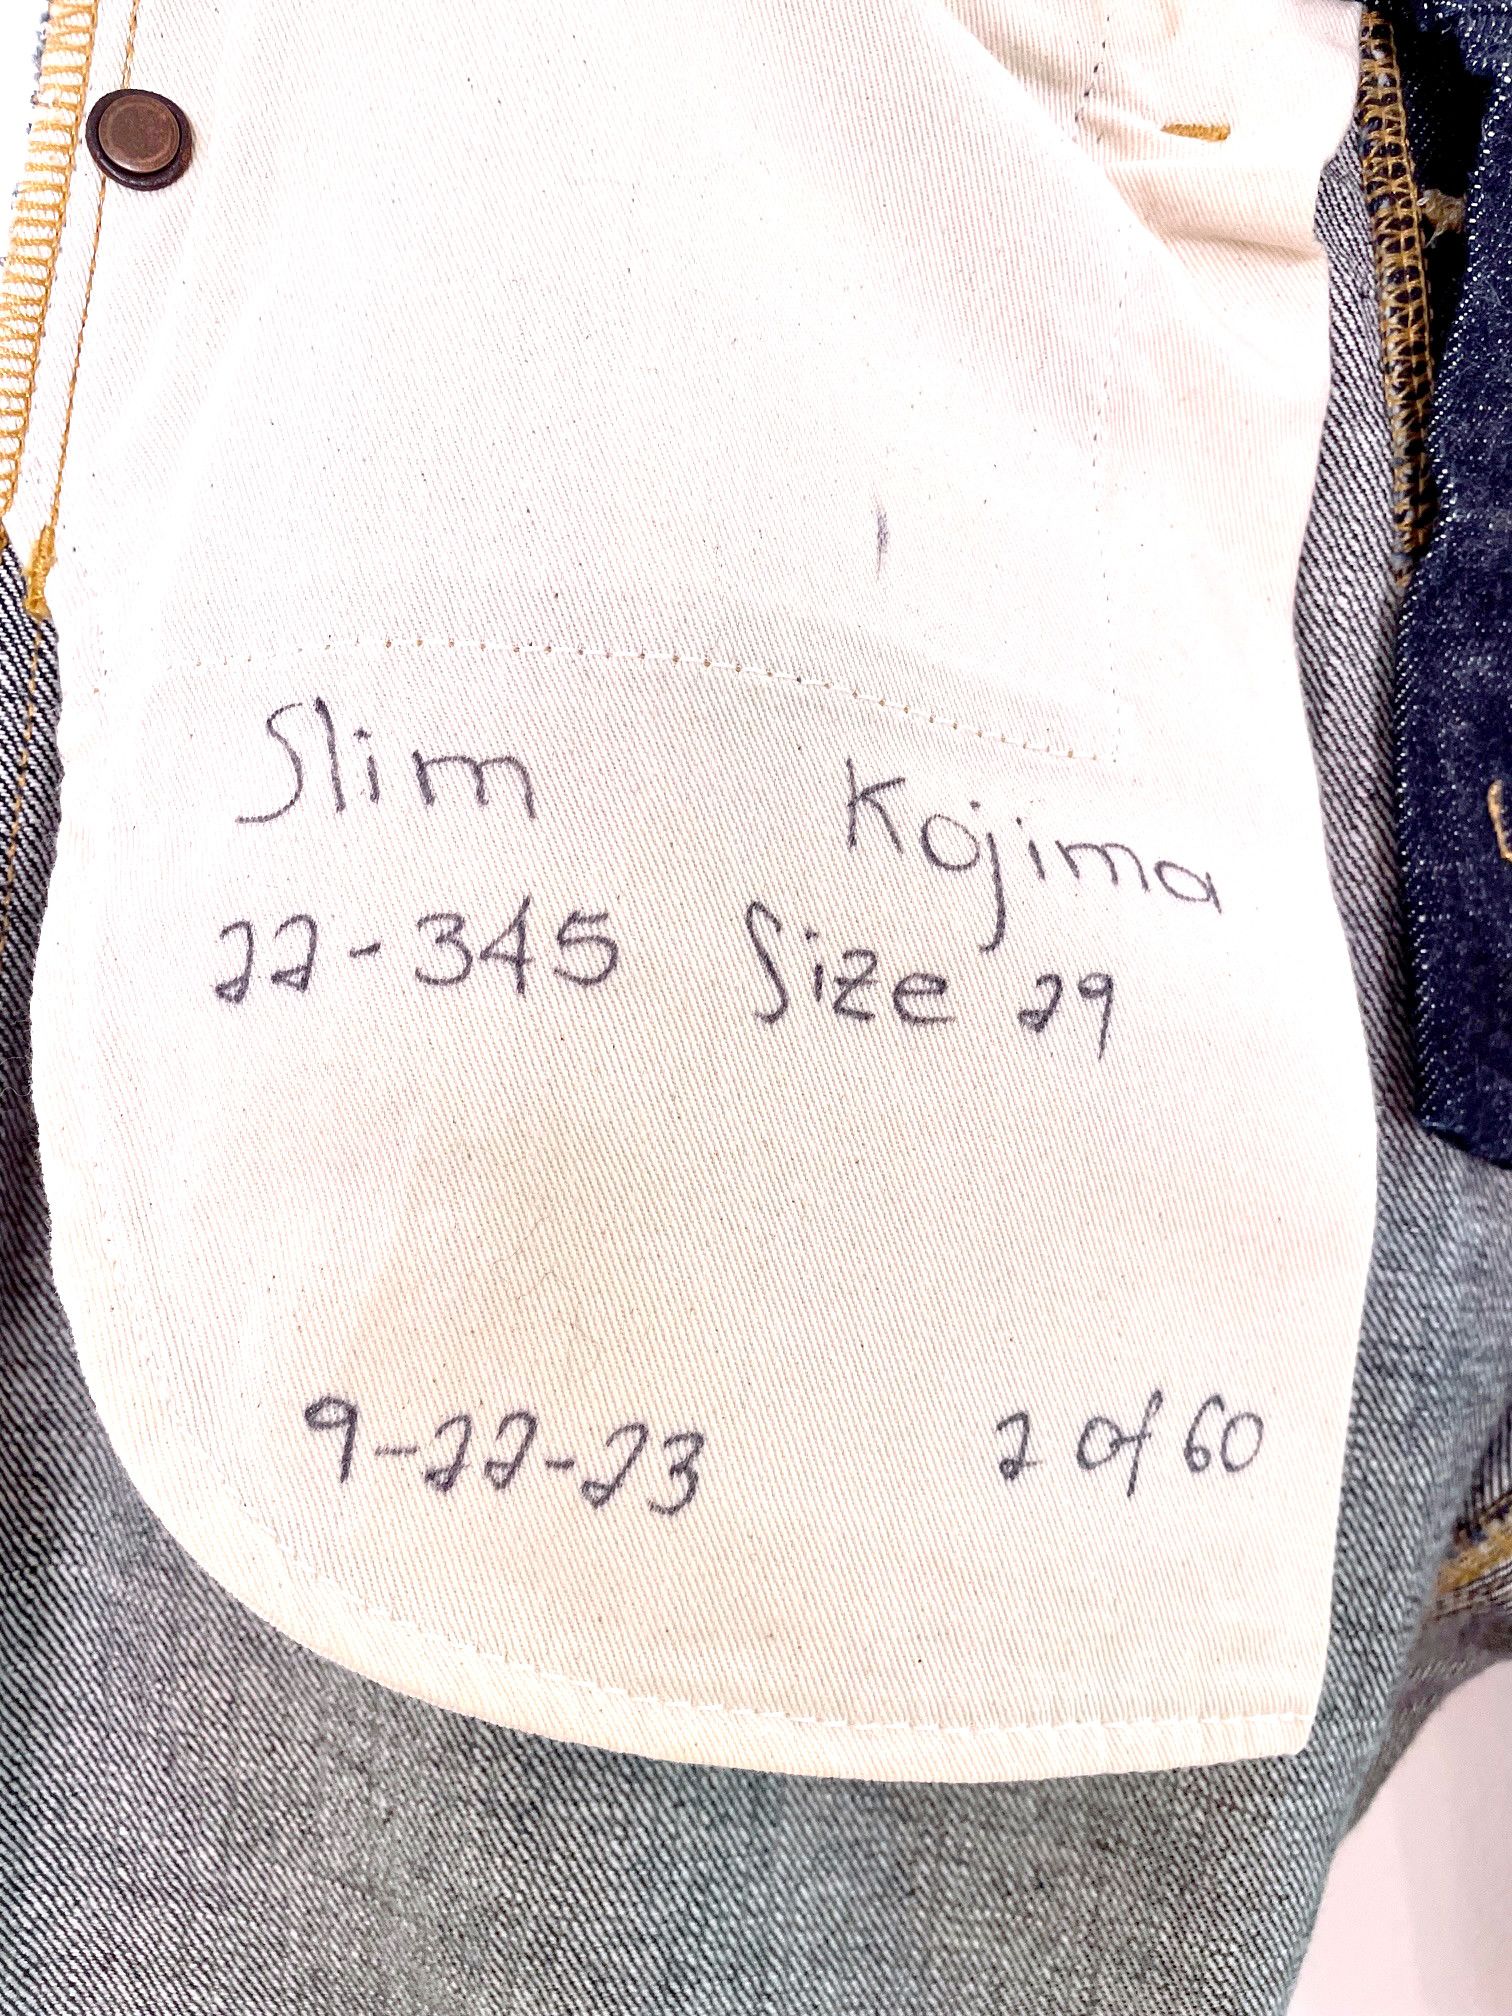 Slim Kojima
22-345 Size 29
9-22-23 2 of 60